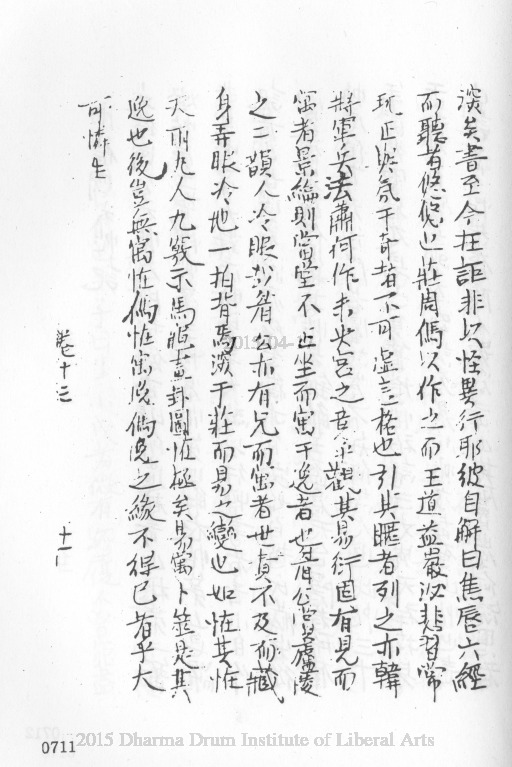 淡矣書至今在詎非以怪異行耶彼自解曰焦唇六經
而聽者悠悠也莊周偶以作之而王道益嚴泌甚習常
玩正與氛干奇者不可虛言格也引其醒者列之亦韓
將軍兵法蕭何作未央宮之意乎觀其易衍固有見而
寓者景綸則當堂不正坐而寓于逸者也眉公當與廬陵
之二韻人冷眼眉公亦有兄而寓者世真不及而藏
身弄眼冷也一拍背馬波于莊而易之變也如怪其怪
天雨九人九幾示馬龍畫卦圖怪極矣易寓卜筮是其
逸也後豈無寓怪偶怪寓逸偶逸之緣不得已者乎大
可憐生
卷十三
十一
0711
2015 Dharma Drum Institute of Liberal Arts